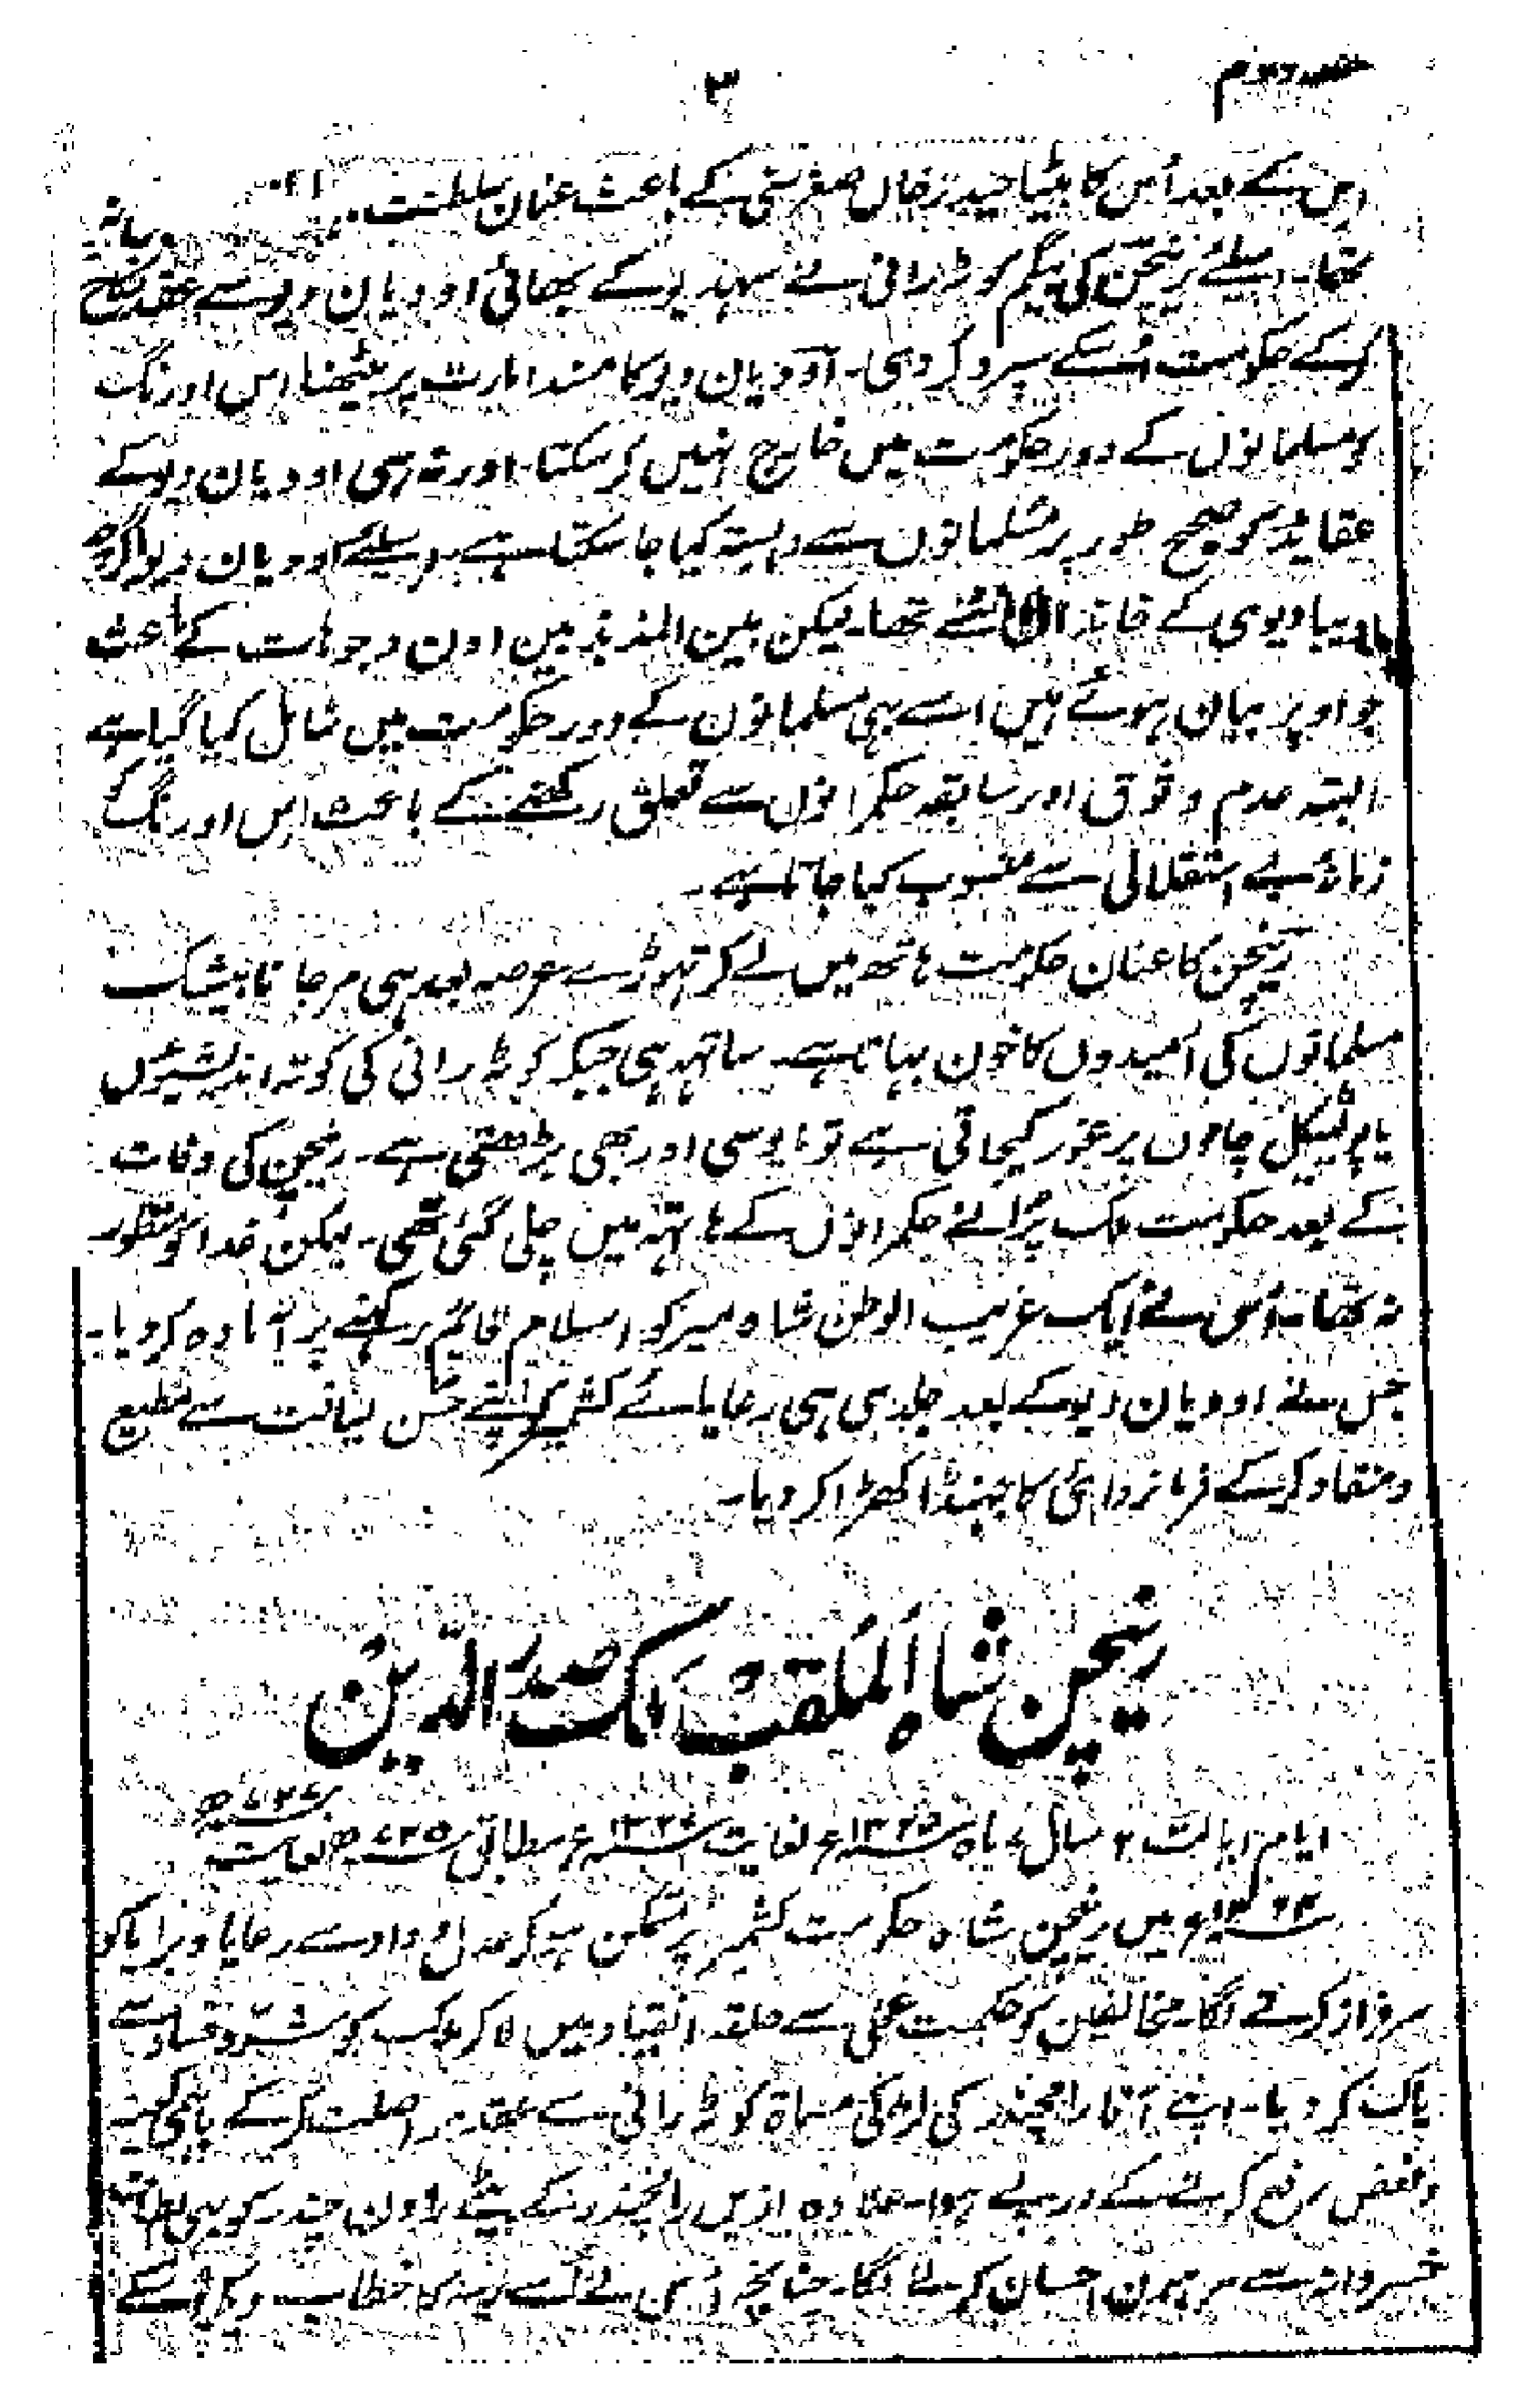 حصہ دوم
۳
اس کے بعد اُس کا بیٹا حیدر خاں صغر سنی کے باعث عنان سلطنت
تھا۔ اسلئے رینچن کی بیگم کوٹہ رانی نے سہدیو کے بھائی اودیان دیو سے عقد نکاح
کرکے حکومت اُسکے سپرد کردی۔ اودیان دیو کا مسند امارت پر بیٹھنا اس اورنگ
کو مسلمانوں کے دور حکومت میں خارج نہیں کرسکتا۔ اور نہ ہی اودیان دیو کے
عقاید کو صحیح طور پر مسلمانوں سے وابستہ کیا جا سکتا ہے۔ اسلئے اودیان دیو اگرچہ
کے خاندان سے تھا۔ لیکن بین المذبذبین اون وجوہات کے باعث
جو اوپر بیان ہوئے ہیں اسے بھی مسلمانوں کے دور حکومت میں شامل کیا گیا ہے
البتہ عدم وثوق اور سابقہ حکمرانوں سے تعلق رکھنے کے باعث اس اورنگ کو
زمانۂ بے استقلالی سے منسوب کیا جاتا ہے۔
رینچن کا عنان حکومت ہاتھ میں لے کر تہوڑے عرصہ بعد ہی مرجانا بیشک
مسلمانوں کی اُمیدوں کا خون بہاتا ہے۔ ساتھ ہی جبکہ کوٹہ رانی کی کوتہ اندیشیوں
یا پولیٹیکل چالوں پر غور کیجاتی ہے تو مایوسی اور بھی بڑھتی ہے۔ رینچن کی وفات
کے بعد حکومت ملک پُرانے حکمرانوں کے ہاتھ میں چلی گئی تھی۔ لیکن خدا کو منظور
نہ تھا۔ اُس نے ایک غریب الوطن شاہ میر کو اسلام قائم رکھنے پر آمادہ کردیا۔
جس نے اودیان دیو کے بعد جلدی ہی رعایائے کشمیر کو اپنے حسن لیاقت سے مطیع
ومنقاد کرکے فرمانروائی کا جہنڈا کھڑا کردیا۔
رینچن شاہ المُلقب ملک صدر الدّین
ایام ایالت ۲ سال ۷ ماہ ۱۳۲۵ء لغایت ۱۳۲۷ء مطابق ۷۲۵ھ لغایت ۷۲۷ھ
میں رینچن شاہ حکومت کشمیر پر متمکن ہوکر عدل و داد سے رعایا و برایا کو
سرفراز کرنے لگا۔ مخالفین کو حکمت عملی سے حلقہ انقیاد میں لاکر ملک کو شر و فساد سے
پاک کردیا۔ اپنے آقا رامچندر کی لڑکی مسماۃ کوٹہ رانی سے عقد مواصلت کرکے باہمی کینہ
وبغض رفع کرنے کے درپے ہوا۔ علاوہ ازیں رامچندر کے بیٹے راون چندر کو بھی
خسروانہ سے مرہون احسان کرنے لگا۔ چنانچہ اُس نے اُسے رینہ کا خطاب دیکر اُسکے